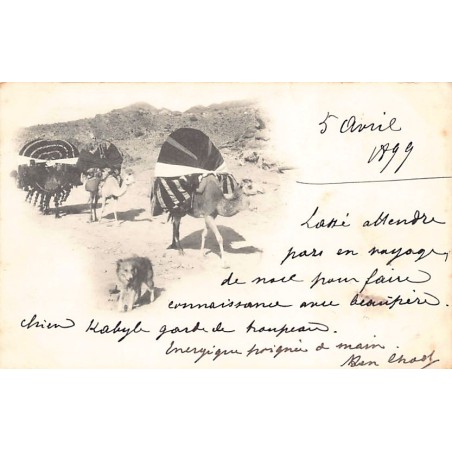 5 Avril
1899
attendre
pars en voyage
de noce pour faire
connaissance avec beaupère.
chien Kabyle garde de troupeau.
Energique poignée de main.
Ben